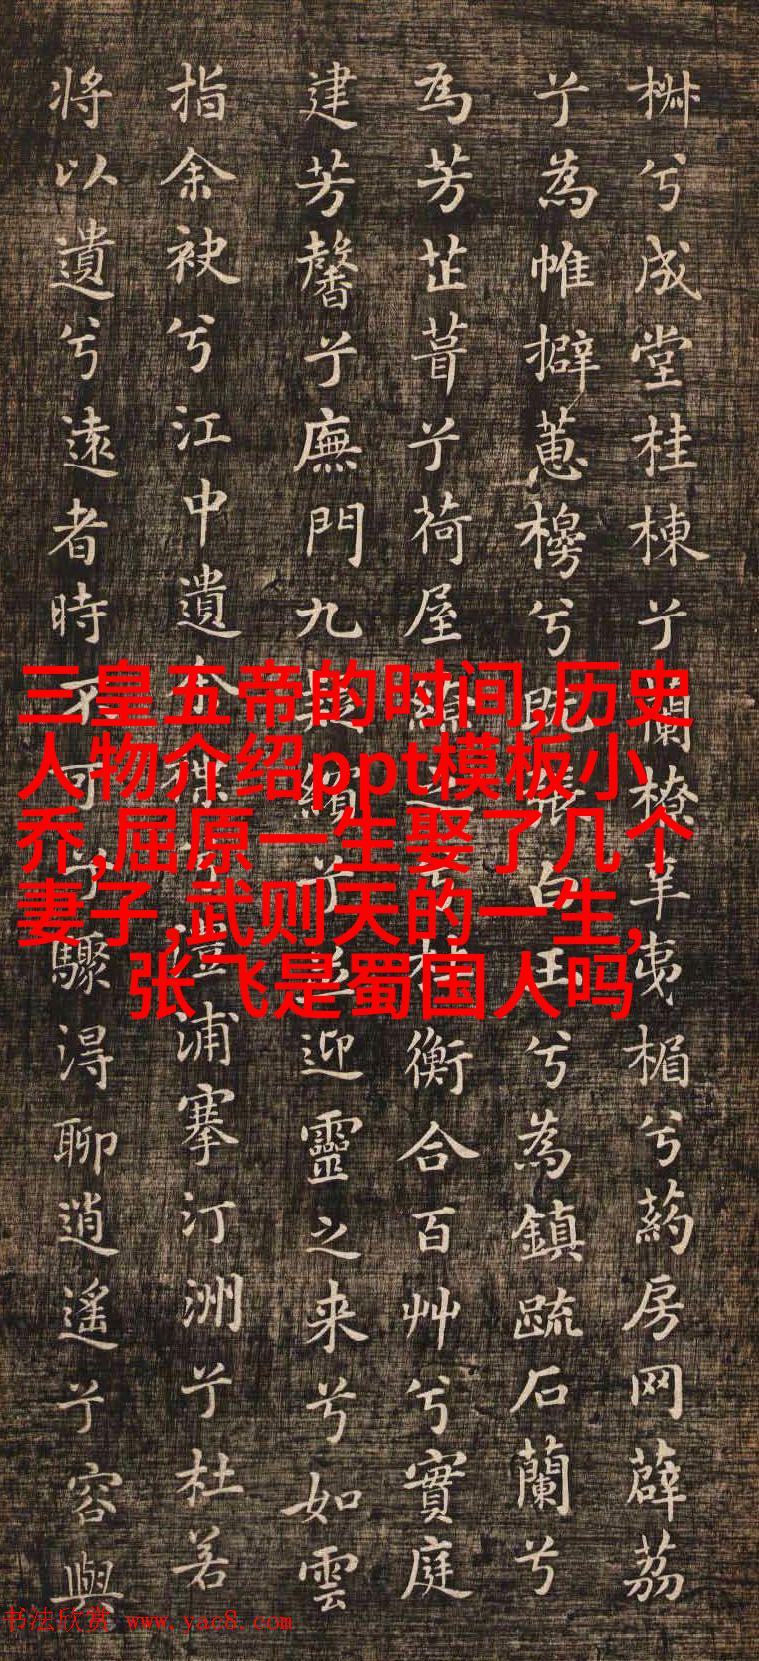 椒兮成堂桂棟兮蘭橑辛夷楣兮葯房网薜荔
兮為帷擗蕙櫋兮既張白玉兮為鎮疏石蘭兮
為芳芷葺兮荷屋繚之兮杜衡合百艸兮實庭
建芳馨兮廡門九嶷繽兮並迎靈之来兮如雲
指余袂兮江中遺余褋兮澧浦搴汀洲兮杜若
将以遺兮遠者時不可兮驟得聊逍遥兮容與
三皇五帝的时间,历史
人物介绍ppt模板小
乔,屈原一生娶了几个
妻子,武则天的一生,
张飞是蜀国人吗
书法欣赏 www.yac8.com